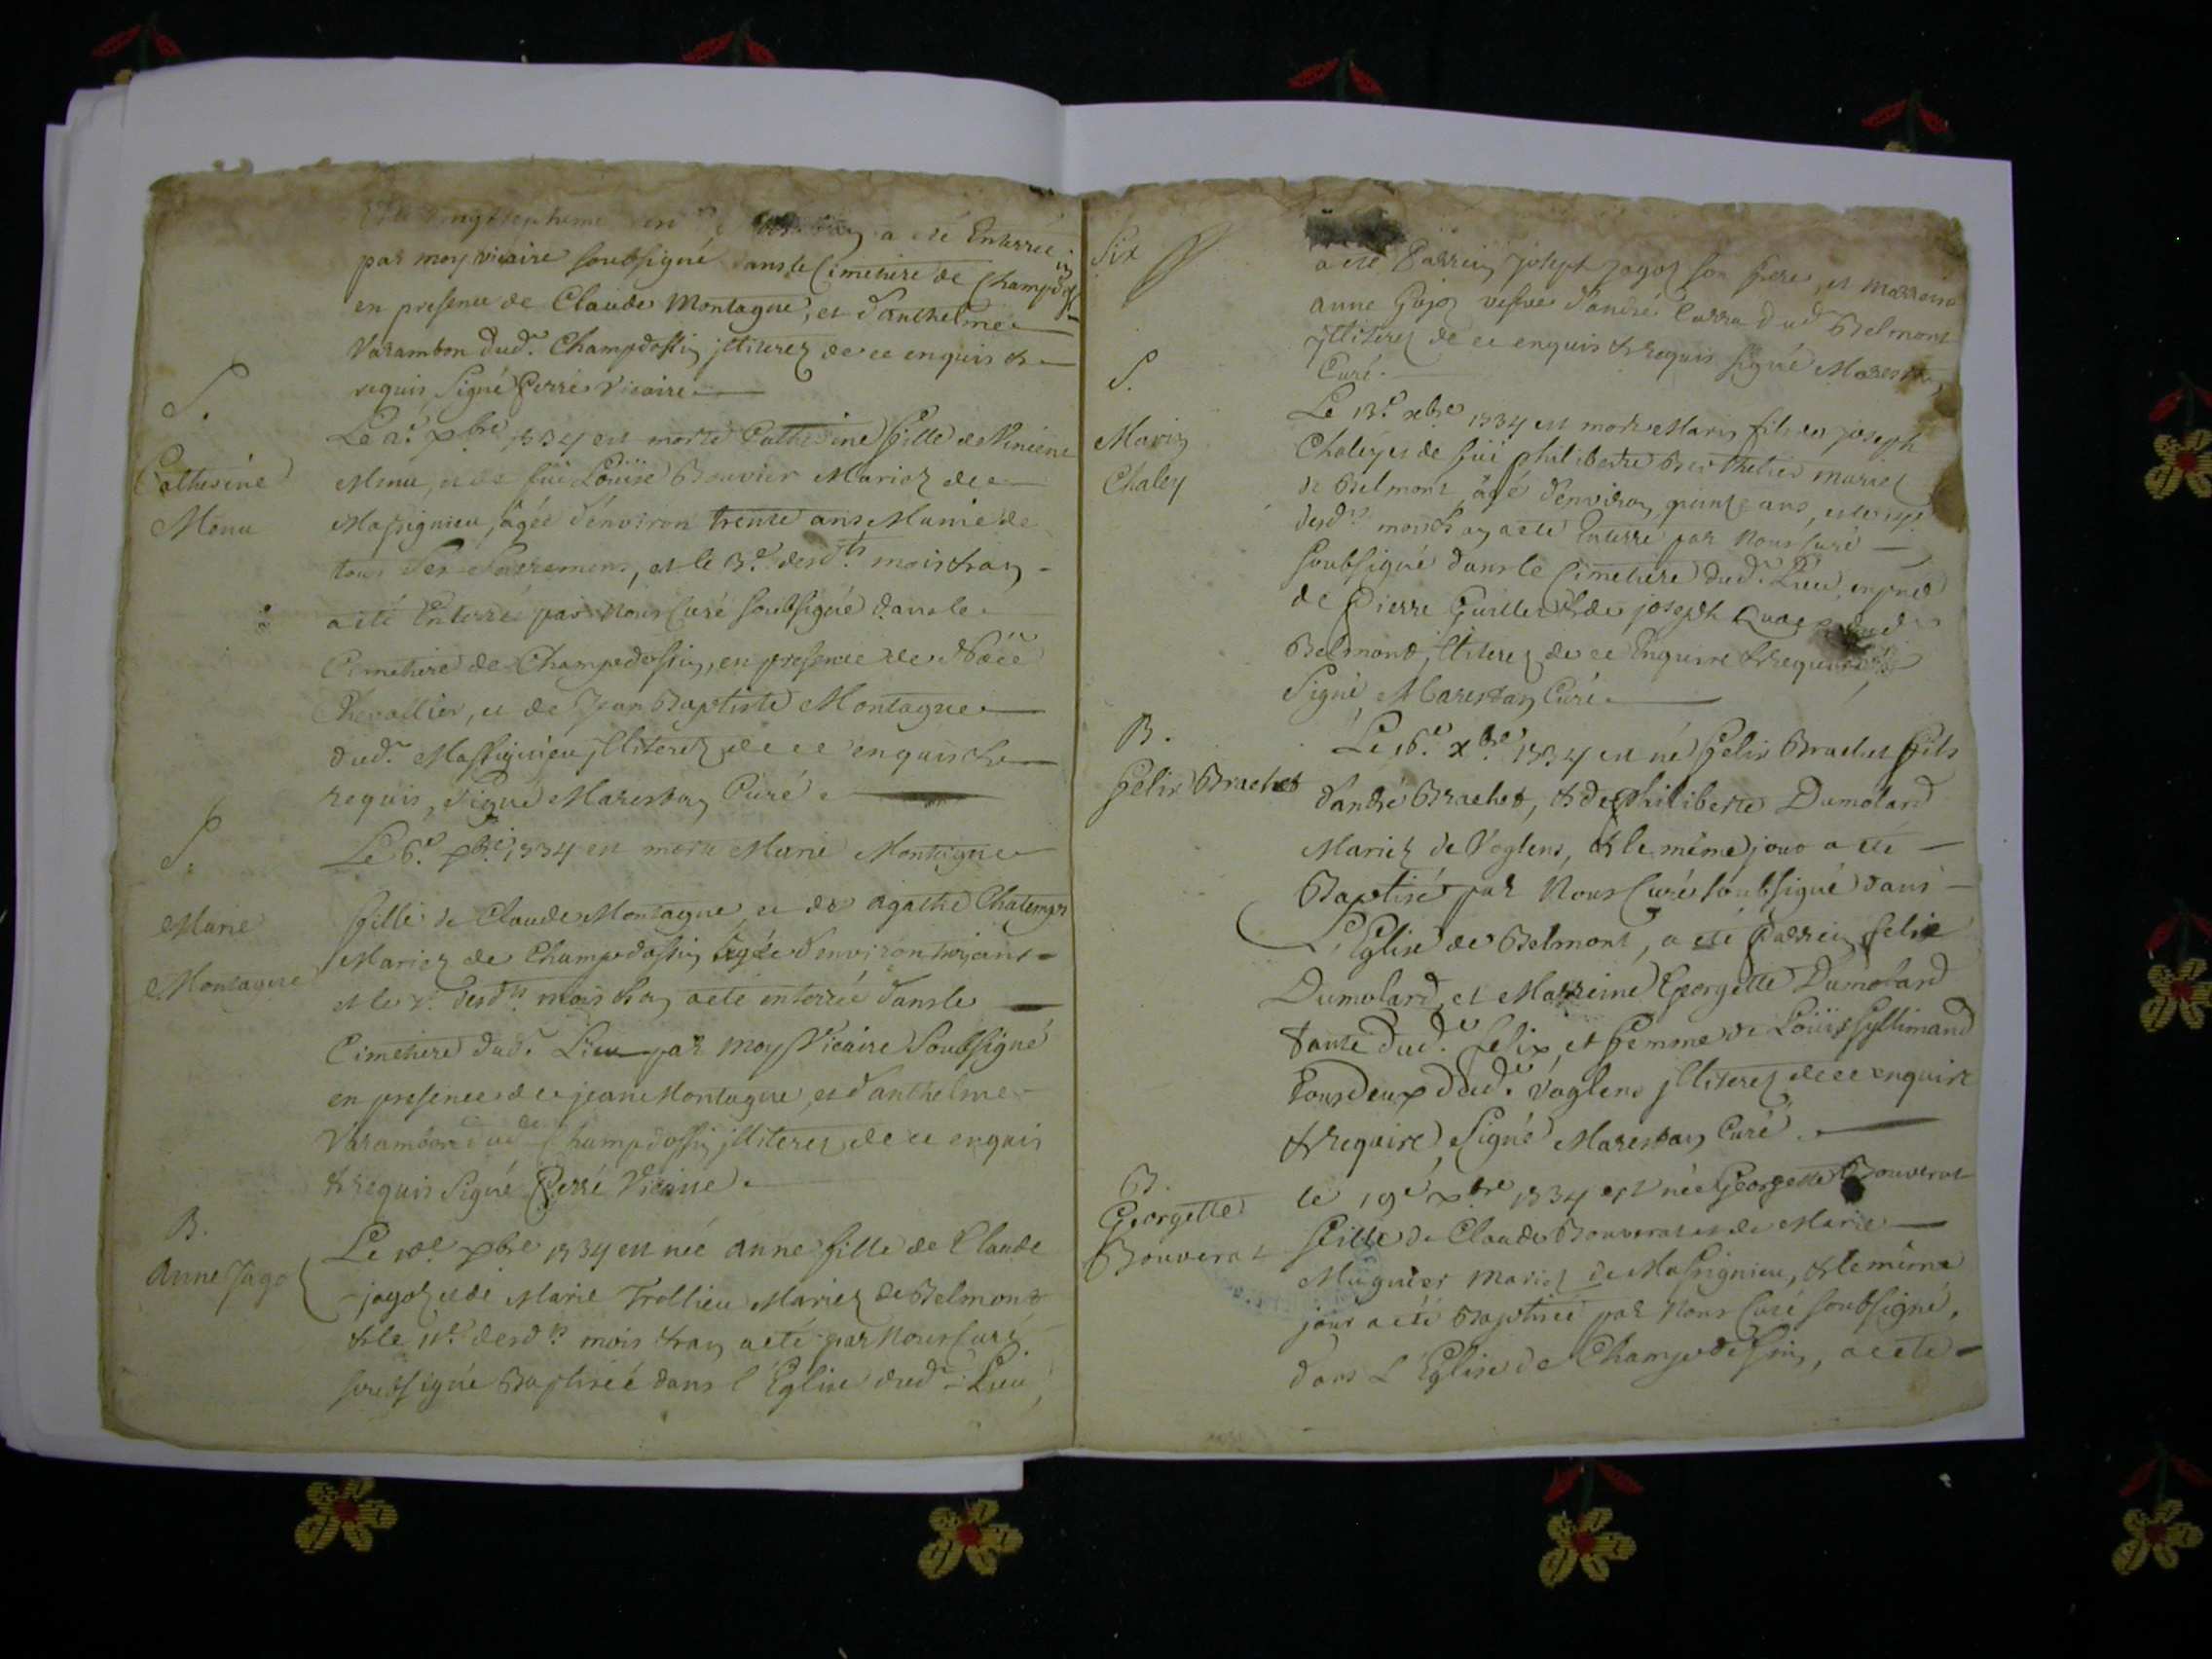 a été Enterrée
par moy vicaire soubsigné dans le Cimetiere de Champdoss
en presence de Claude Montague, et d'anthelme
Varambon dud.t Champdossin jlliterez de ce enquis &
requis Signé Perré Vicaire
S.
Catherine
Monu
Le 2.e xbre 1734 est morte Catherine fille de
Monu, et de fuë Loüise Bouvier Mariez de
Massignieu, âgée d'environ trente ans, Munie de
tous Ses Sacremens, et le 3.e desd.ts mois & an
a été Enterrée par Nous Curé soubsigné dans le
Cimetiere de Champdossin, en presence de Noëe
Chevallier, et de Jean Baptiste Montague
dud.t Massignieu jlliterez de ce enquis &
requis, Signé Marestan Curé
S.
Marie
Montague
Le 6.e xbre 1734 est morte Marie Montague
fille de Claude Montague, et de agathe
Mariez de Champdossin âgée d'environ trois ans
et le 7.e desd.ts mois & an a été enterrée dans le
Cimetiere dud.t Lieu par moy Vicaire Soubsigné
en presence de jean Montague, et d'anthelme
Varambon dud.t Champdossin jlliterez de ce enquis
& requis Signé Perré Vicaire
B.
Anne Jago
Le 10e xbre 1734 est née anne fille de Claude
jagoz et de Marie Trollieu Mariez de Belmont
& le 11.e desd.ts mois & an a été par Nous Curé
soubsigné Baptisée dans l'Eglise dud.t Lieu,
Six
a été Parrein joseph jagoz son frere, et Marreine
anne Gojoz vefve d'andré Carra dud.t Belmont
jlliterez de ce enquis & requis signé Marestan
Curé.
S.
Marin
Chaley
Le 13.e xbre 1734 est mort Marin fils de joseph
Chaley et de fuë philiberte Berthelier mariez
de Belmont, âgé d'environ quinze ans, et le
desd.ts mois & an a été Enterré par Nous Curé
soubsigné dans le Cimetiere dud.t Lieu, en
de Pierre Guillet & de joseph dud.t
Belmont, jlliterez de ce Enquire & require
Signé, Marestan Curé
B.
Felix Brachet
Le 16.e xbre 1734 est né Felix Brachet fils
d'andré Brachet, & de philiberte Dumolard
Mariez de Voglens, & le même jour a été
Baptisé par Nous Curé soubsigné dans
L'Eglise de Belmont, a été Parrein felix
Dumolard, et Marreine Georgette Dumolard
tante dud.t Felix, et femme de Loüis
tous deux dud.t Voglens jlliterez de ce enquire
& require, Signé Marestan Curé
B.
Georgette
Bouverat
le 19e xbre 1734 est née Georgette Bouverat
fille de Claude Bouverat et de Marie
Muguier Mariez de Massignieu, & le même
jour a été Baptisée par Nous Curé soubsigné,
dans L'Eglise de Champdossin, a été